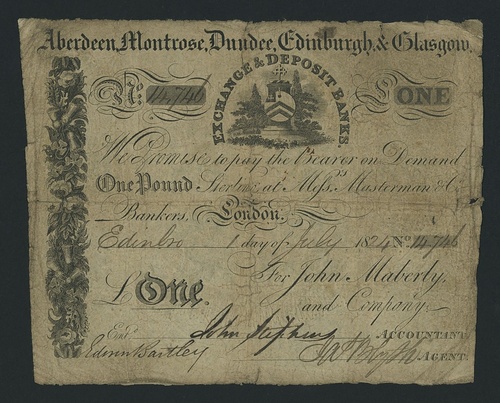 Aberdeen, Montrose, Dundee, Edinburgh, & Glasgow.
EXCHANGE & DEPOSIT BANKS
No. 14,746 £ ONE
We Promise to pay the Bearer on Demand
One Pound Sterling at Messrs. Masterman & Co.
Bankers, London.
Edinbro 1 day of July 1824 No. 14,746
For John Maberly,
and Company
£ One.
John Stephens ACCOUNTANT
Entd. AGENT
Edwin Bartley